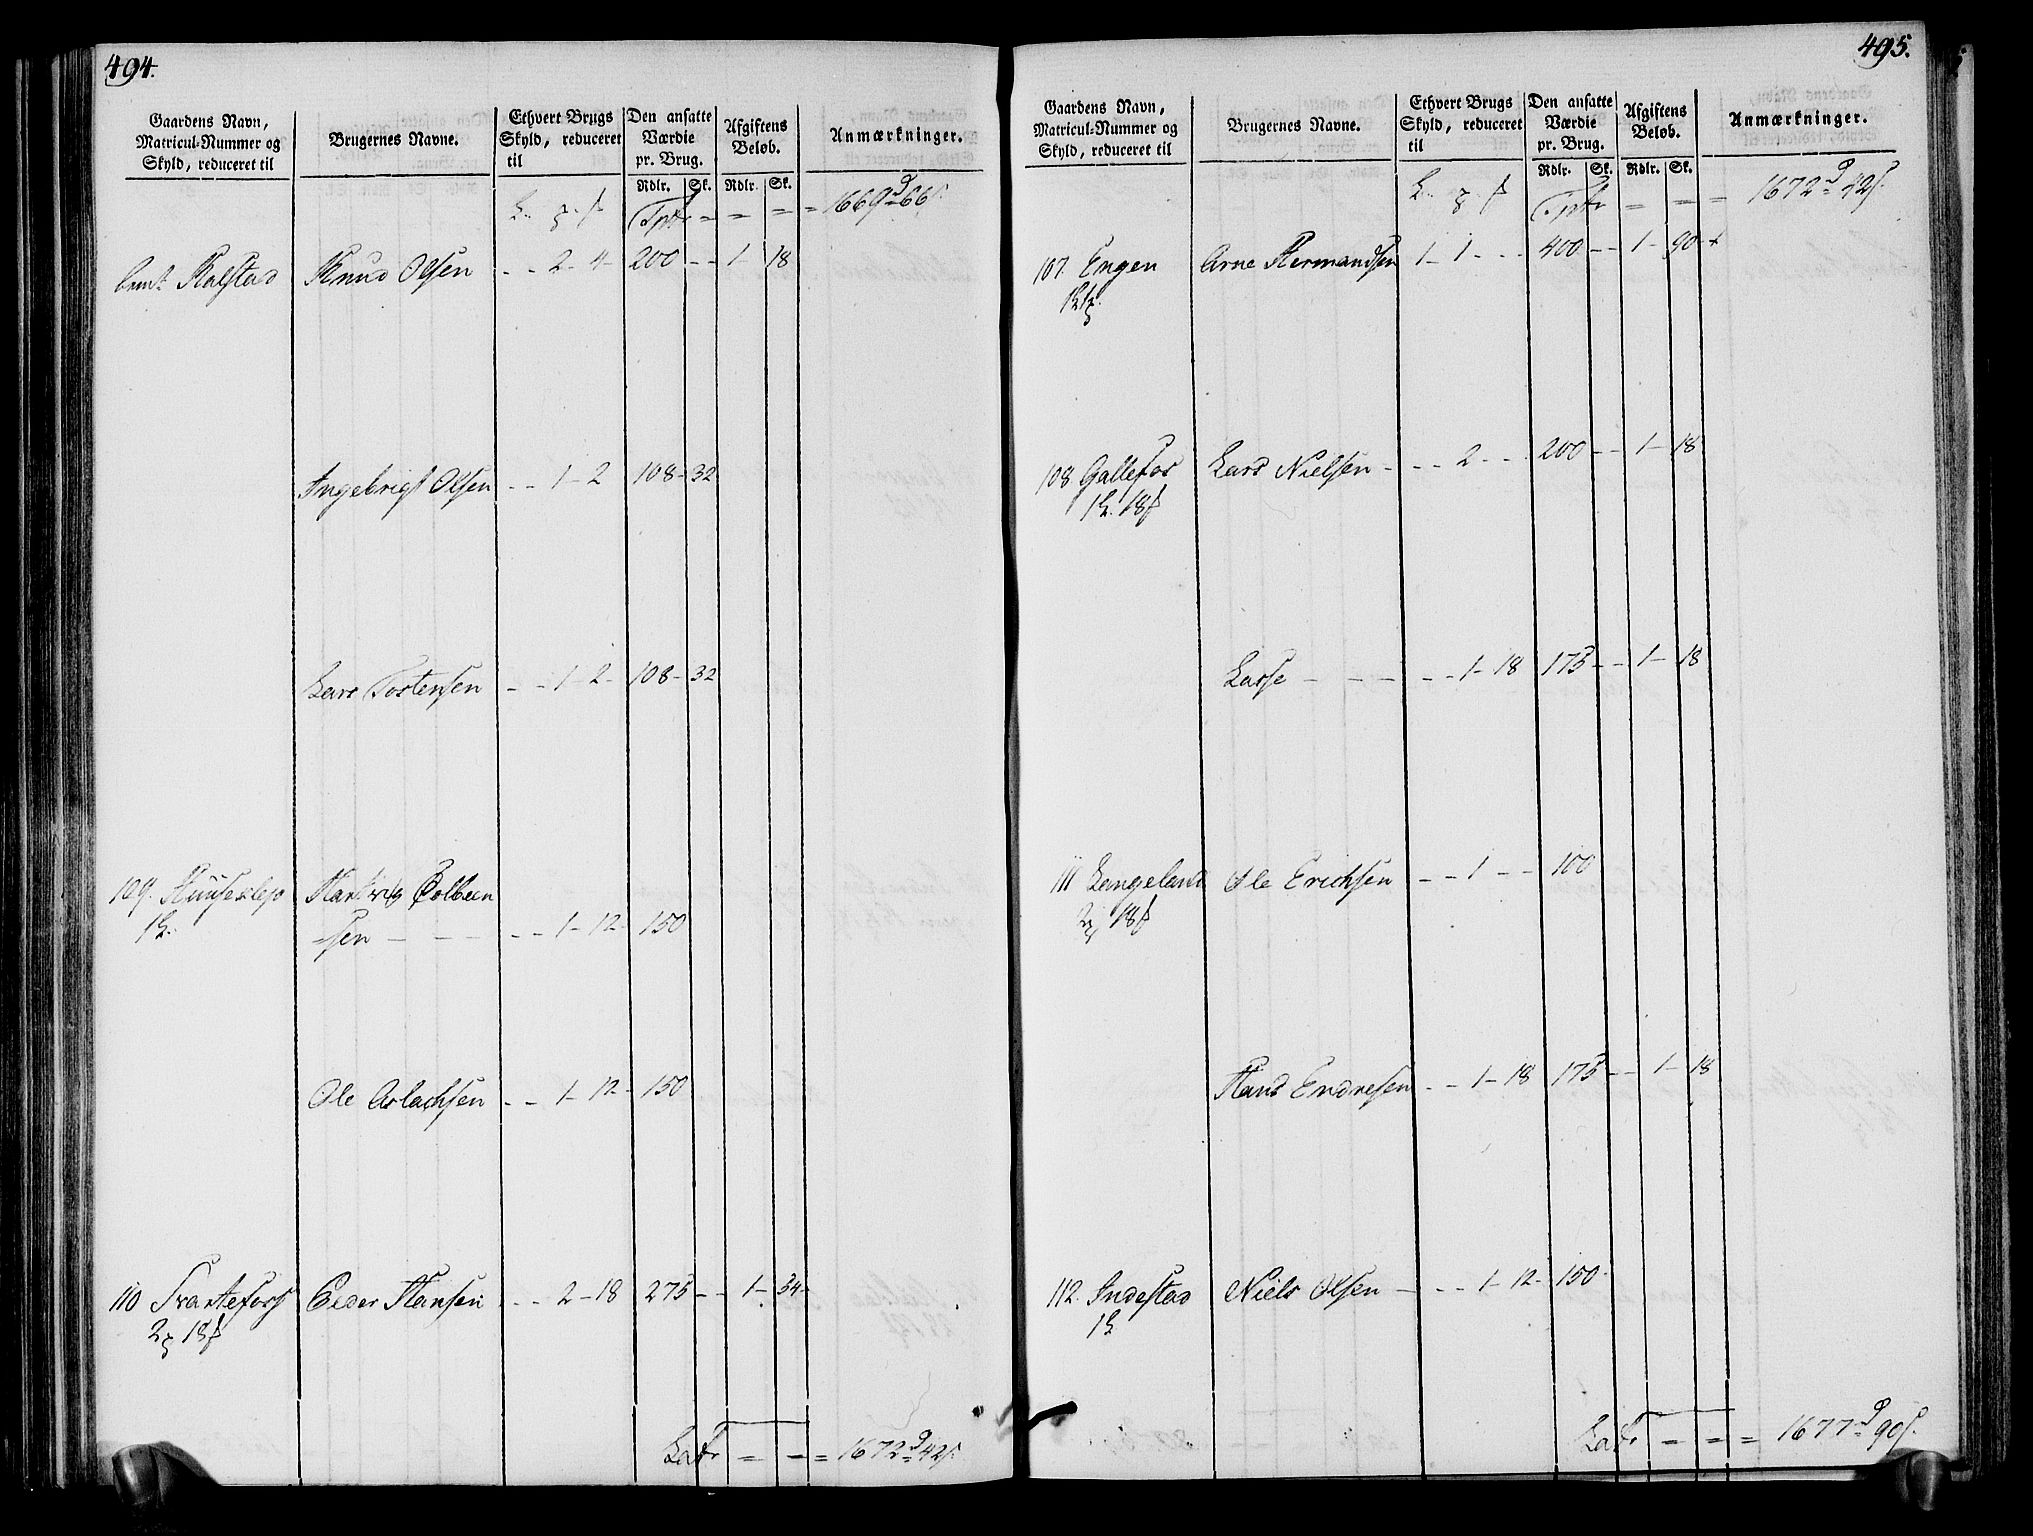 494.
Gaardens Navn, Matricul-Nummer og Skyld, reduceret til
Brugernes Navne.
Ethvert Brugs Skyld, reduceret til
Den ansatte Værdie pr. Brug.
Afgiftens Beløb.
Anmærkninger.
Rdlr. Sk. Rdlr. Sk.
Tptr = = = = 1669d 66s.
Kalstad Knud Olsen - - 2 - 4 - 200 - - 1 - 18
Ingebrigt Olsen - - 1 - 2 108 - 32
Lars Tostensen - - 1 - 2 - 108 - 32
109.
sen - - - - - 1 - 12 - 150
Ole Aslachsen - - 1 - 12 - 150
110 Peder Hansen - - 2 - 18 275 - - 1 - 34 -
Latr = = = 1672d 42s.
495.
Gaardens Navn, Matricul-Nummer og Skyld, reduceret til
Brugernes Navne.
Ethvert Brugs Skyld, reduceret til
Den ansatte Værdie pr. Brug.
Afgiftens Beløb.
Anmærkninger.
Rdlr. Sk. Rdlr. Sk.
Tptr = = = 1672d 42s.
107. Engen Arne Hermandsen 1 - 1 - - - 400 - - 1 - 90
108 Gallefos Lars Nielsen - - - 2 - - 200 - - 1 - 18
Lasse - - - - - 1 - 18 175 - - 1 - 18
111 Langeland Ole Erichsen - - 1 - - 100
Hans Endresen - - 1 - 18 175 - - 1 - 18
112. Indestad Niels Olsen - - - 1 - 12 - 150
Latr = = = 1677d 90s.